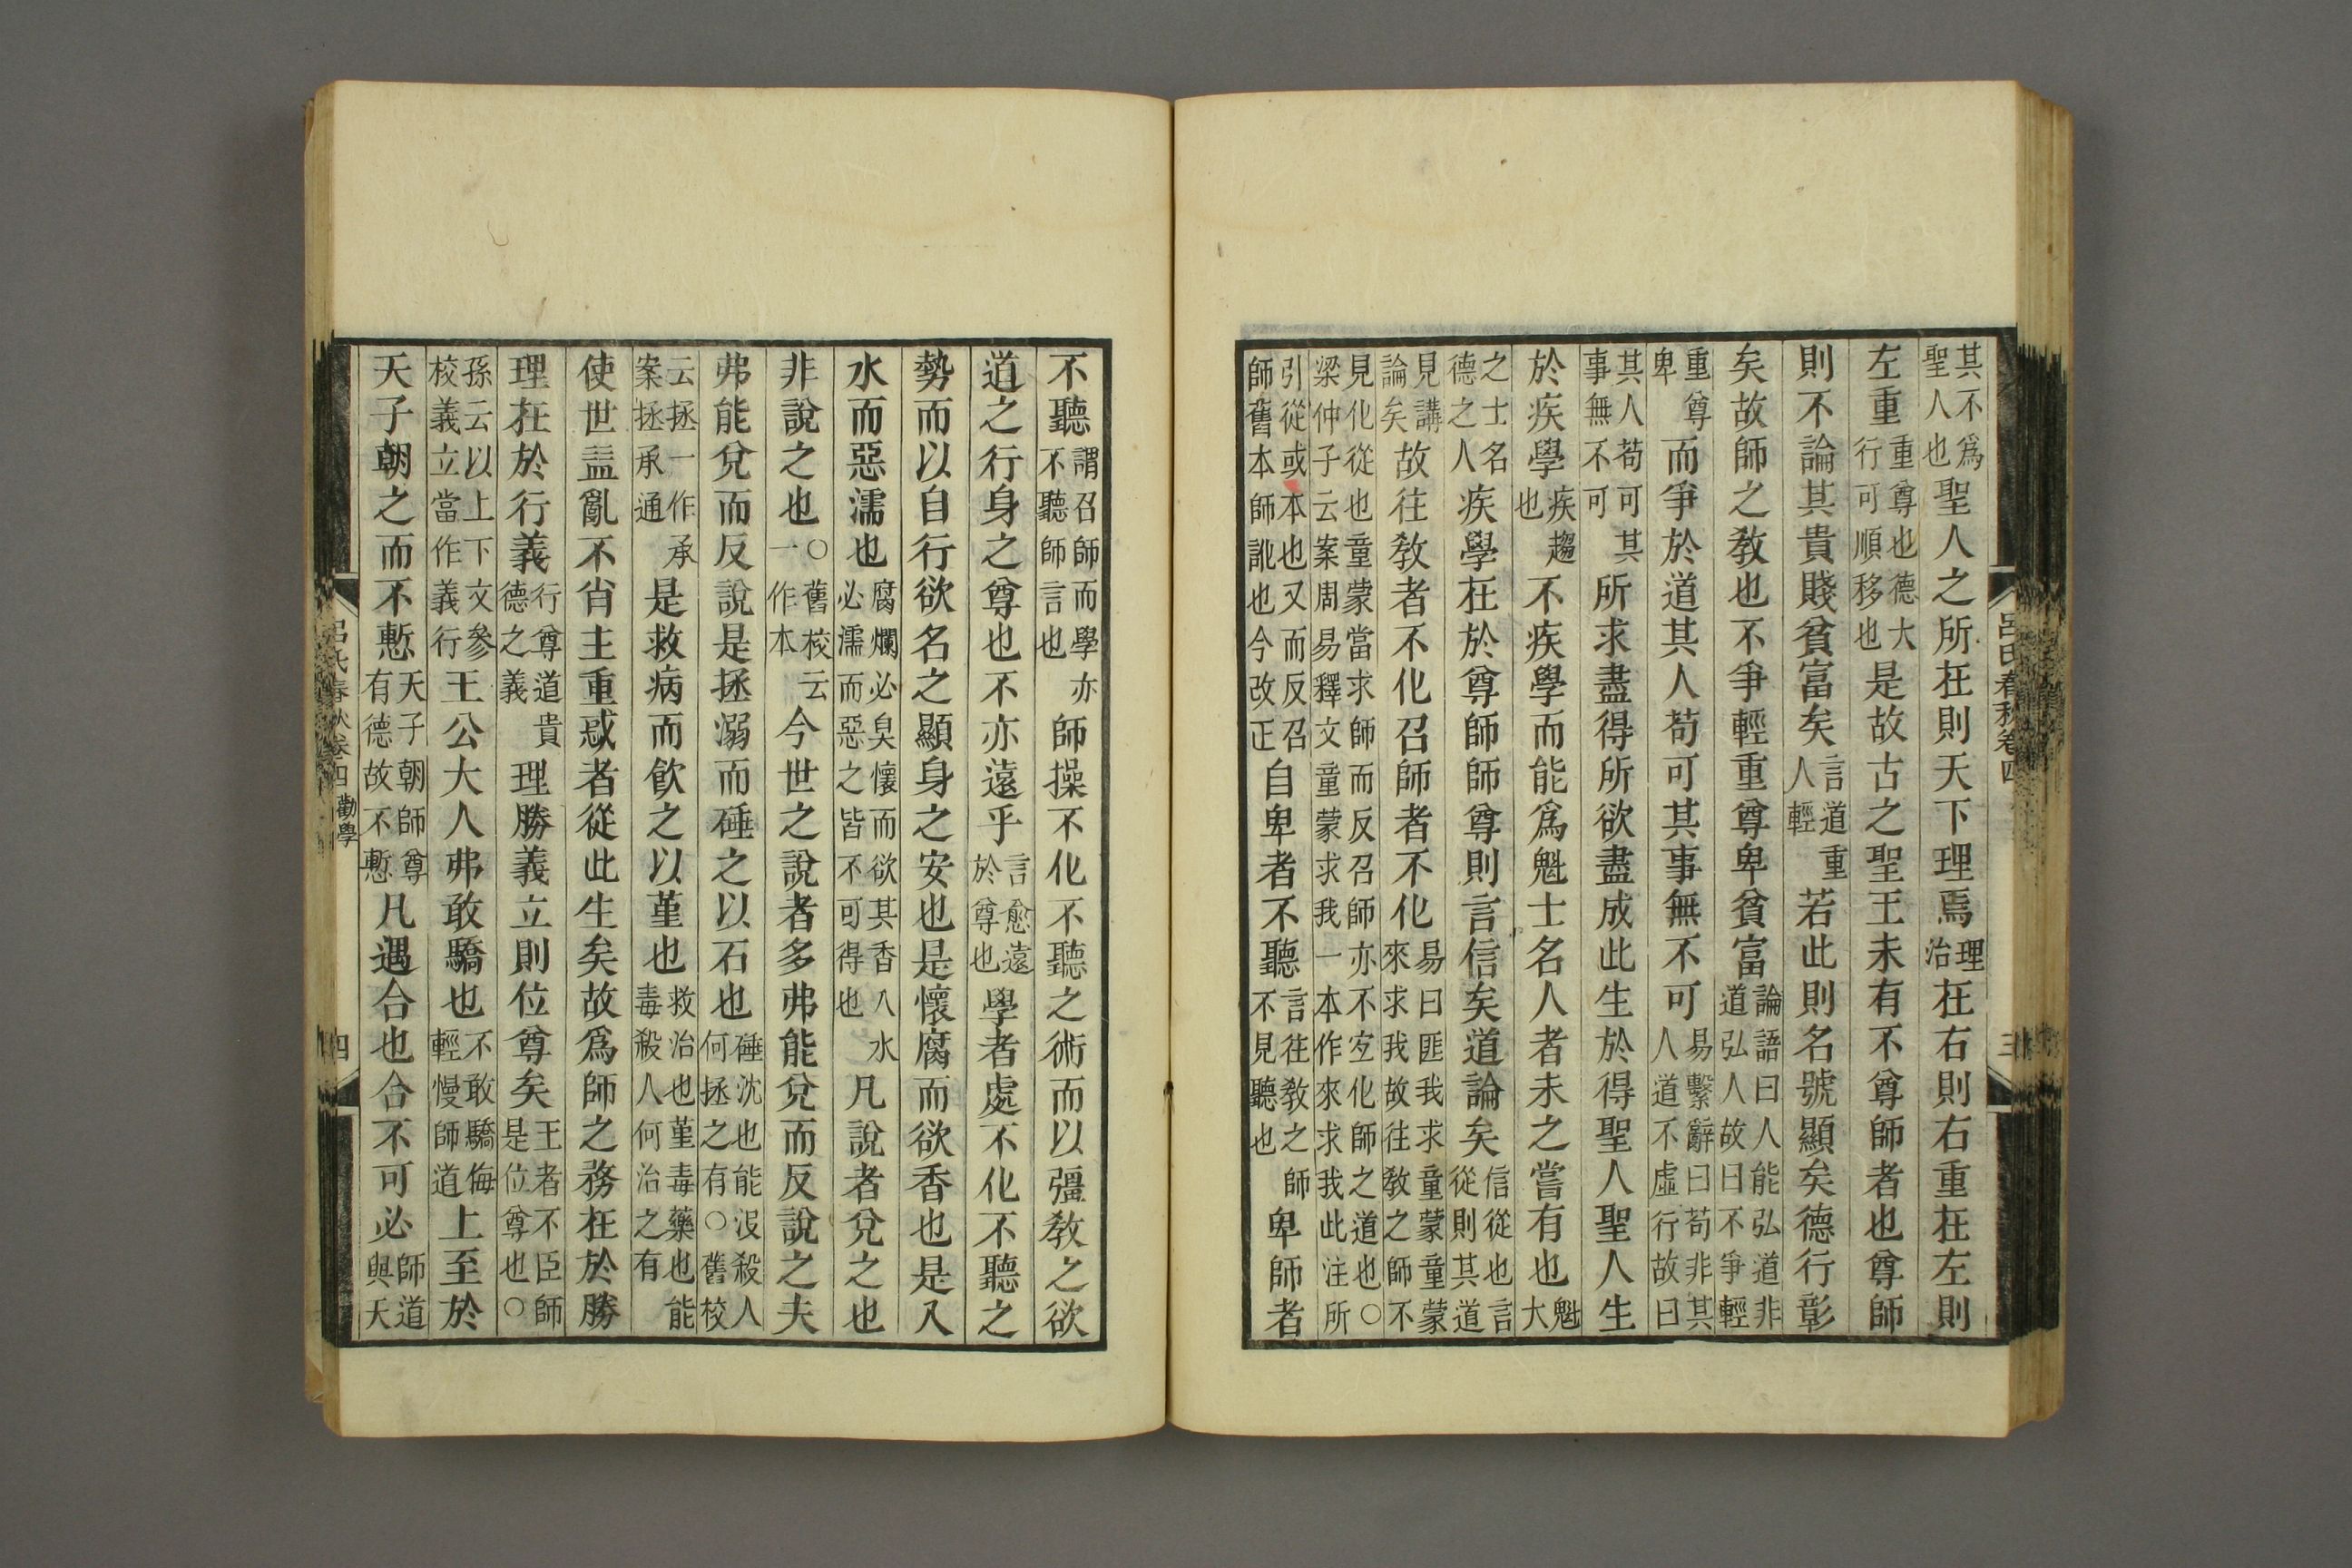 其不爲聖人也聖人之所在則天下理焉理治在右則右重在左則
左重重尊也德大行可順移也是故古之聖王未有不尊師者也尊師
則不論其貴賤貧富矣言道重人輕若此則名號顯矣德行彰
矣故師之敎也不爭輕重尊卑貧富論語曰人能弘道非道弘人故曰不爭輕
重尊卑而爭於道其人苟可其事無不可易繫辭曰苟非其人道不虛行故曰
其人苟可其事無不可所求盡得所欲盡成此生於得聖人聖人生
於疾學疾趨也不疾學而能爲魁士名人者未之嘗有也魁大
之士名德之人疾學在於尊師師尊則言信矣道論矣信從也言從則其道
見講論矣故往敎者不化召師者不化易曰匪我求童蒙童蒙來求我故往敎之師不
見化從也童蒙當求師而反召師亦不宜化師之道也○梁仲子云案周易釋文童蒙求我一本作來求我此注所
引從或本也又而反召師舊本師訛也今改正自卑者不聽言往敎之師不見聽也卑師者
呂氏春秋卷四
三
不聽謂召師而學亦不聽師言也師操不化不聽之術而以彊敎之欲
道之行身之尊也不亦遠乎言愈遠於尊也學者處不化不聽之
勢而以自行欲名之顯身之安也是懷腐而欲香也是入
水而惡濡也腐爛必臭懷而欲其香入水必濡而惡之皆不可得也凡說者兌之也
非說之也○舊校云一作本今世之說者多弗能兌而反說之夫
弗能兌而反說是拯溺而硾之以石也硾沈也能沒殺人何拯之有○舊校
云拯一作承案拯承通是救病而飮之以堇也救治也堇毒藥也能毒殺人何治之有
使世盇亂不肖主重惑者從此生矣故爲師之務在於勝
理在於行義行尊道貴德之義理勝義立則位尊矣王者不臣師是位尊也○
孫云以上下文參校義立當作義行王公大人弗敢驕也不敢驕侮輕慢師道上至於
天子朝之而不慙天子朝師尊有德故不慙凡遇合也合不可必師道與天
呂氏春秋卷四勸學
四